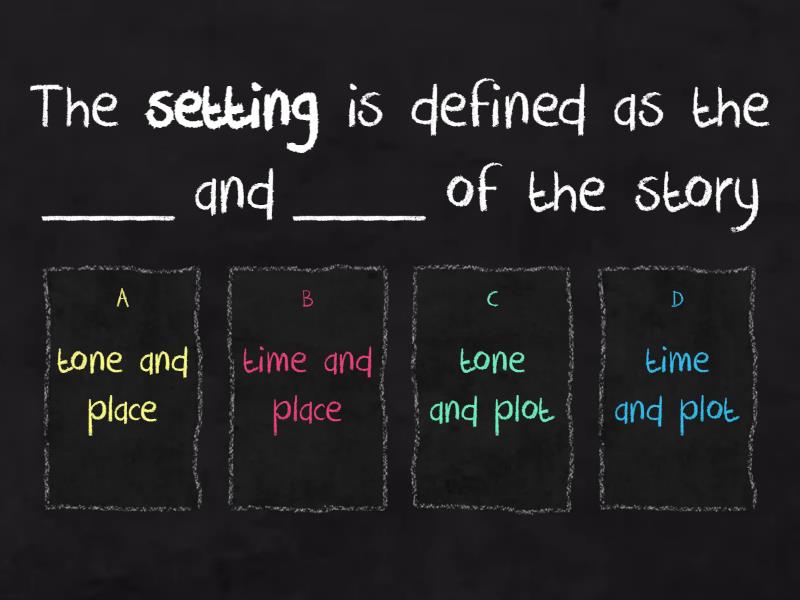 The setting is defined as the
_____ and _____ of the story
A
tone and
place
B
time and
place
C
tone
and plot
D
time
and plot